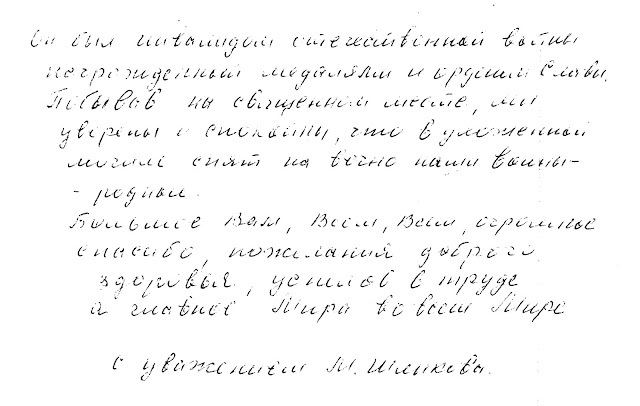 Он был инвалидом отечественной войны
награжденный медалями и орденом Славы.
Побывав на священном месте, мы
уверены и спокойны, что в ухоженной
могиле спят на вечно наши воины-
- родные.
Большое Вам, Всем, Всем, огромные
спасибо, пожелания доброго
здоровья, успехов в труде
а главное Мира во всем Мире
с уважением М. Шленкова.